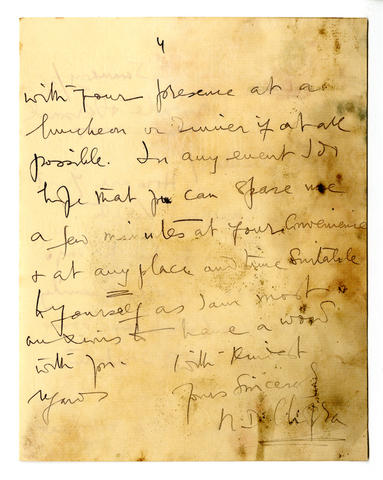 4
with your presence at a
luncheon or dinner if at all
possible. In any event I do
hope that you can spare me
a few minutes at your convenience
& at any place and time suitable
to yourself as I am most
anxious to have a word
with you. With kindest
regards Yours Sincerely
N. D.